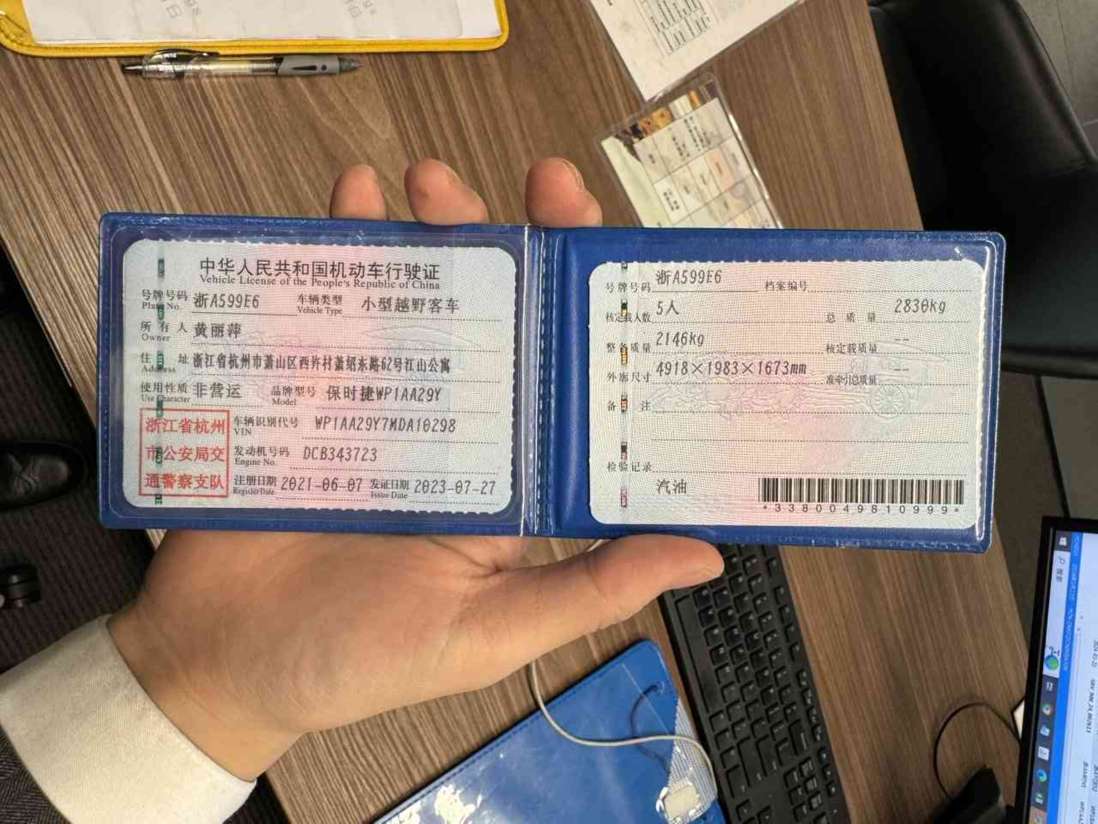 中华人民共和国机动车行驶证
Vehicle License of the People's Republic of China
号牌号码 浙A599E6 车辆类型 小型越野客车
Plate No. Vehicle Type
所有人 黄丽萍
Owner
住址 浙江省杭州市萧山区西许村萧绍东路62号江山公寓
Address
使用性质 非营运 品牌型号 保时捷WP1AA29Y
Use Character Model
浙江省杭州
市公安局交
通警察支队
车辆识别代号 WP1AA29Y7MDA10298
VIN
发动机号码 DCB343723
Engine No.
注册日期 2021-06-07 发证日期 2023-07-27
Register Date Issue Date
号牌号码 浙A599E6 档案编号
核定载人数 5人 总质量 2830kg
整备质量 2146kg 核定载质量 --
外廓尺寸 4918×1983×1673mm 准牵引总质量 --
备注
检验记录
汽油
*3380049810999*